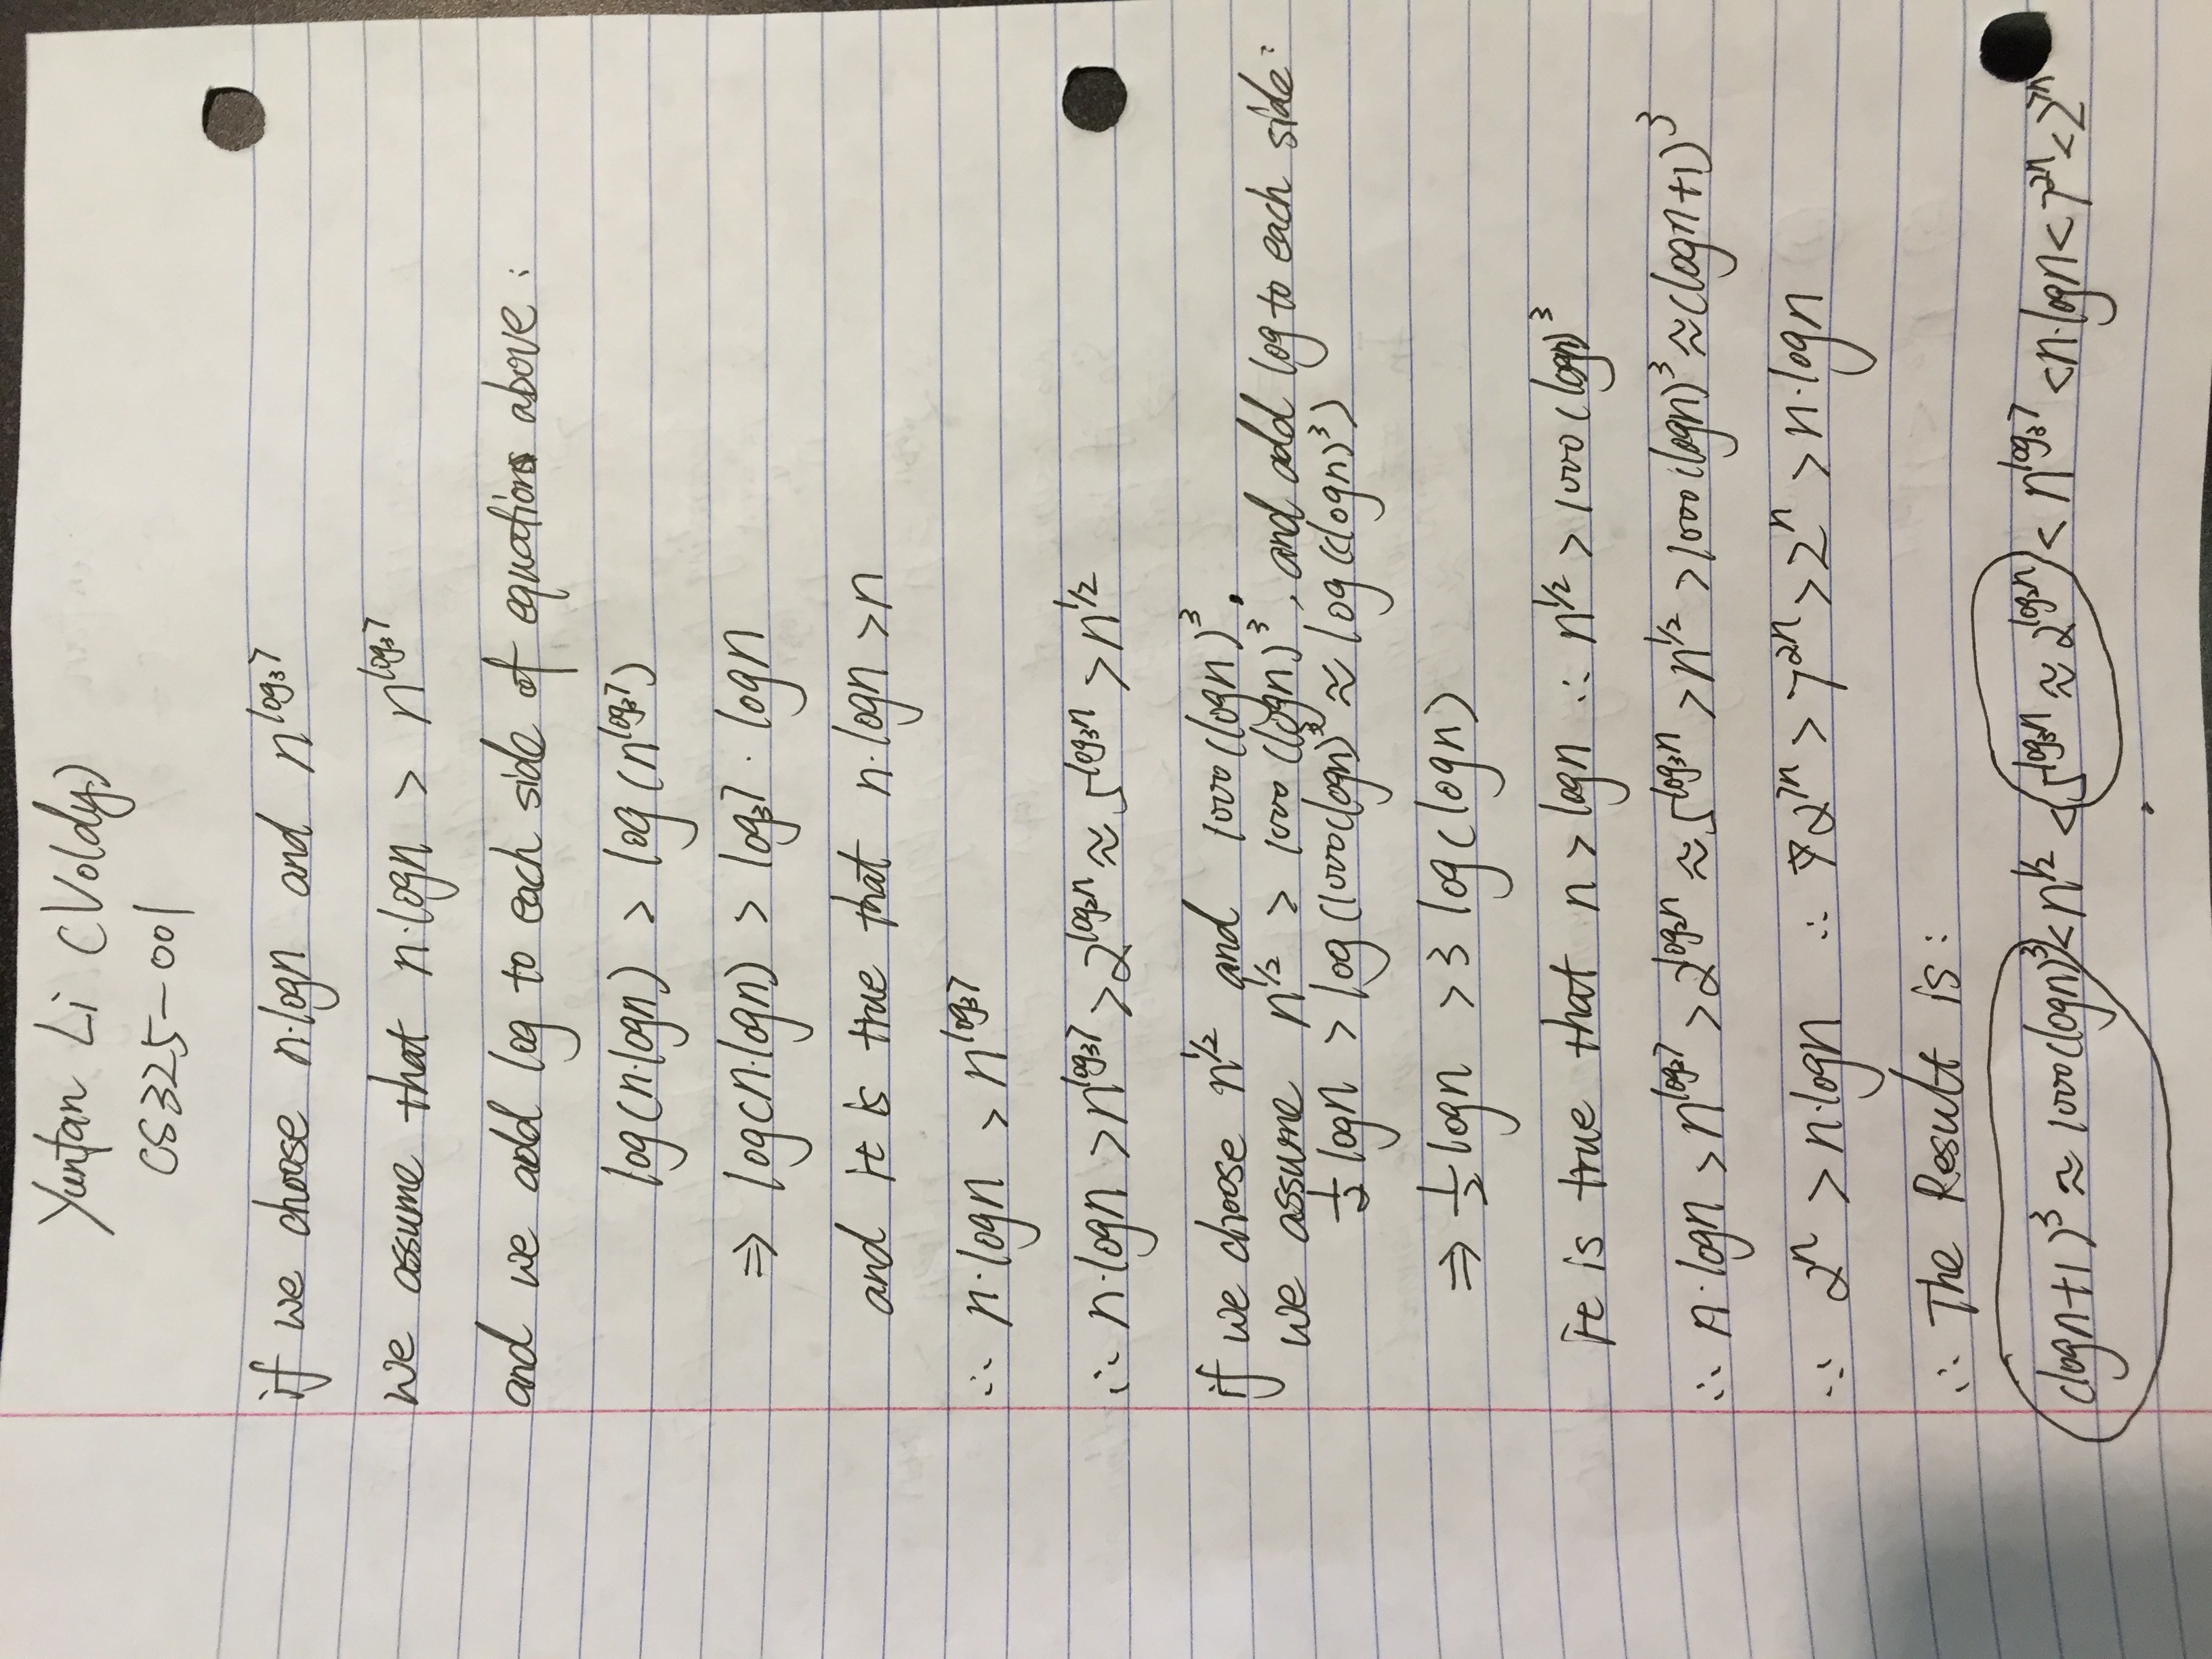 Yunfan Li (Voldy)
CS325-001
if we choose n·logn and n^{log₃7}
we assume that n·logn > n^{log₃7}
and we add log to each side of equations above:
log(n·logn) > log(n^{log₃7})
⇒ log(n·logn) > log₃7 · logn
and it is true that n·logn > n
∴ n·logn > n^{log₃7}
∴ n·logn > n^{log₃7} > 2^{log₂n} ≈ 5^{log₃n} > n^{1/2}
if we choose n^{1/2} and 1000(logn)³.
we assume n^{1/2} > 1000(logn)³, and add log to each side:
½ logn > log(1000(logn)³ ≈ log((logn)³)
⇒ ½ logn > 3 log(logn)
it is true that n > logn ∴ n^{1/2} > 1000(logn)³
∴ n·logn > n^{log₃7} > 2^{log₂n} ≈ 5^{log₃n} > n^{1/2} > 1000(logn)³ ≈ (logn+1)³
∵ 2ⁿ > n·logn ∴ 2^{7n} > 7^{2n} > 2ⁿ > n·logn
∴ The Result is:
(logn+1)³ ≈ 1000(logn)³ < n^{1/2} < 5^{log₃n} ≈ 2^{log₂n} < n^{log₃7} < n·logn < 7^{2n} < 2^{7n}